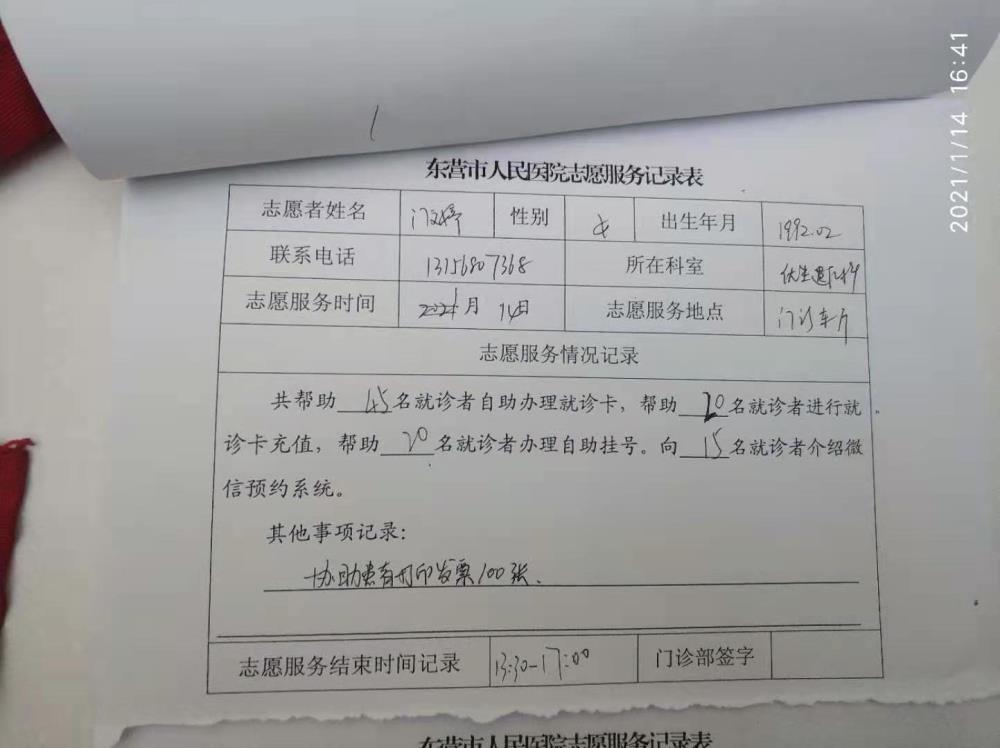 2021/1/14 16:41
东营市人民医院志愿服务记录表
志愿者姓名 门婷 性别 女 出生年月 1992.02
联系电话 13156807368 所在科室 优生遗传科
志愿服务时间 2021 1月 14日 志愿服务地点 门诊车厅
志愿服务情况记录
共帮助 45 名就诊者自助办理就诊卡，帮助 20 名就诊者进行就
诊卡充值，帮助 20 名就诊者办理自助挂号。向 15 名就诊者介绍微
信预约系统。
其他事项记录：
协助患者打印发票100张、
志愿服务结束时间记录 13:30-17:00 门诊部签字
东营市人民医院志愿服务记录表